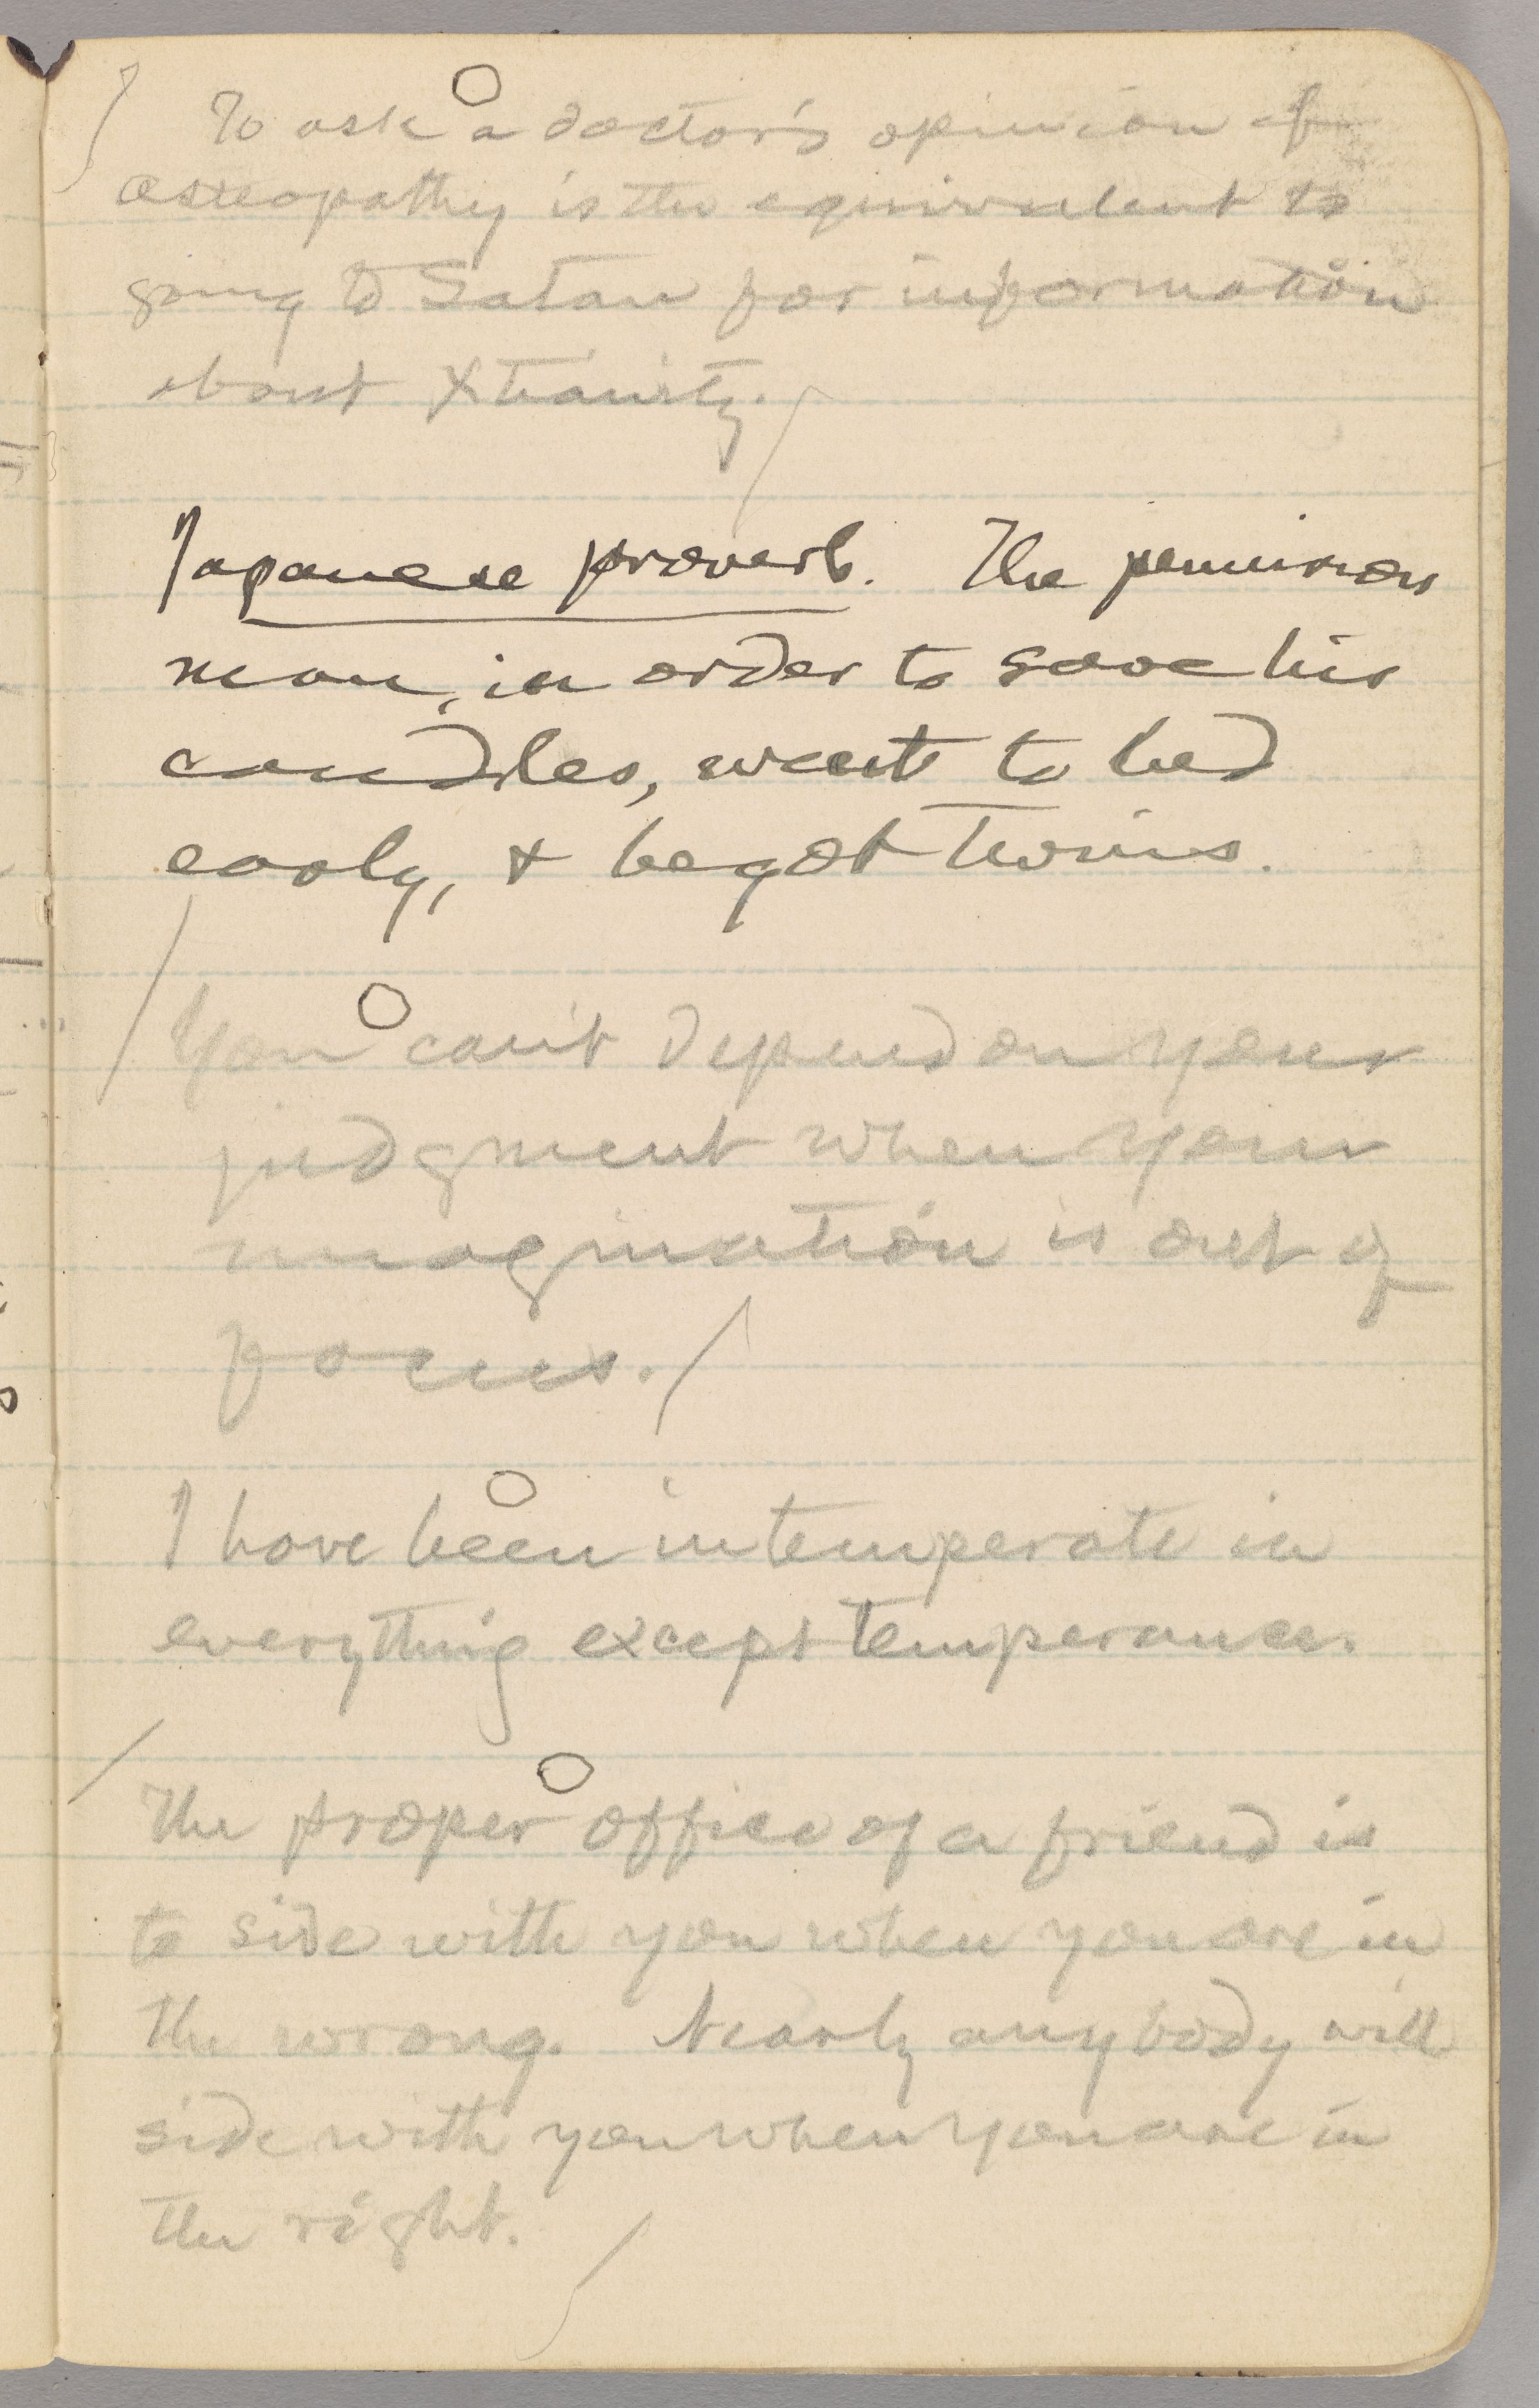 To ask a doctor's opinion of
osteopathy is the equivalent to
going to Satan for information
about Xtianity.
Japanese proverb. The penurious
man, in order to save his
candles, went to bed
early, & begot twins.
You can't depend on your
judgment when your
imagination is out of
focus.
I have been intemperate in
everything except temperance.
The proper office of a friend is
to side with you when you are in
the wrong. Nearly anybody will
side with you when you are in
the right.